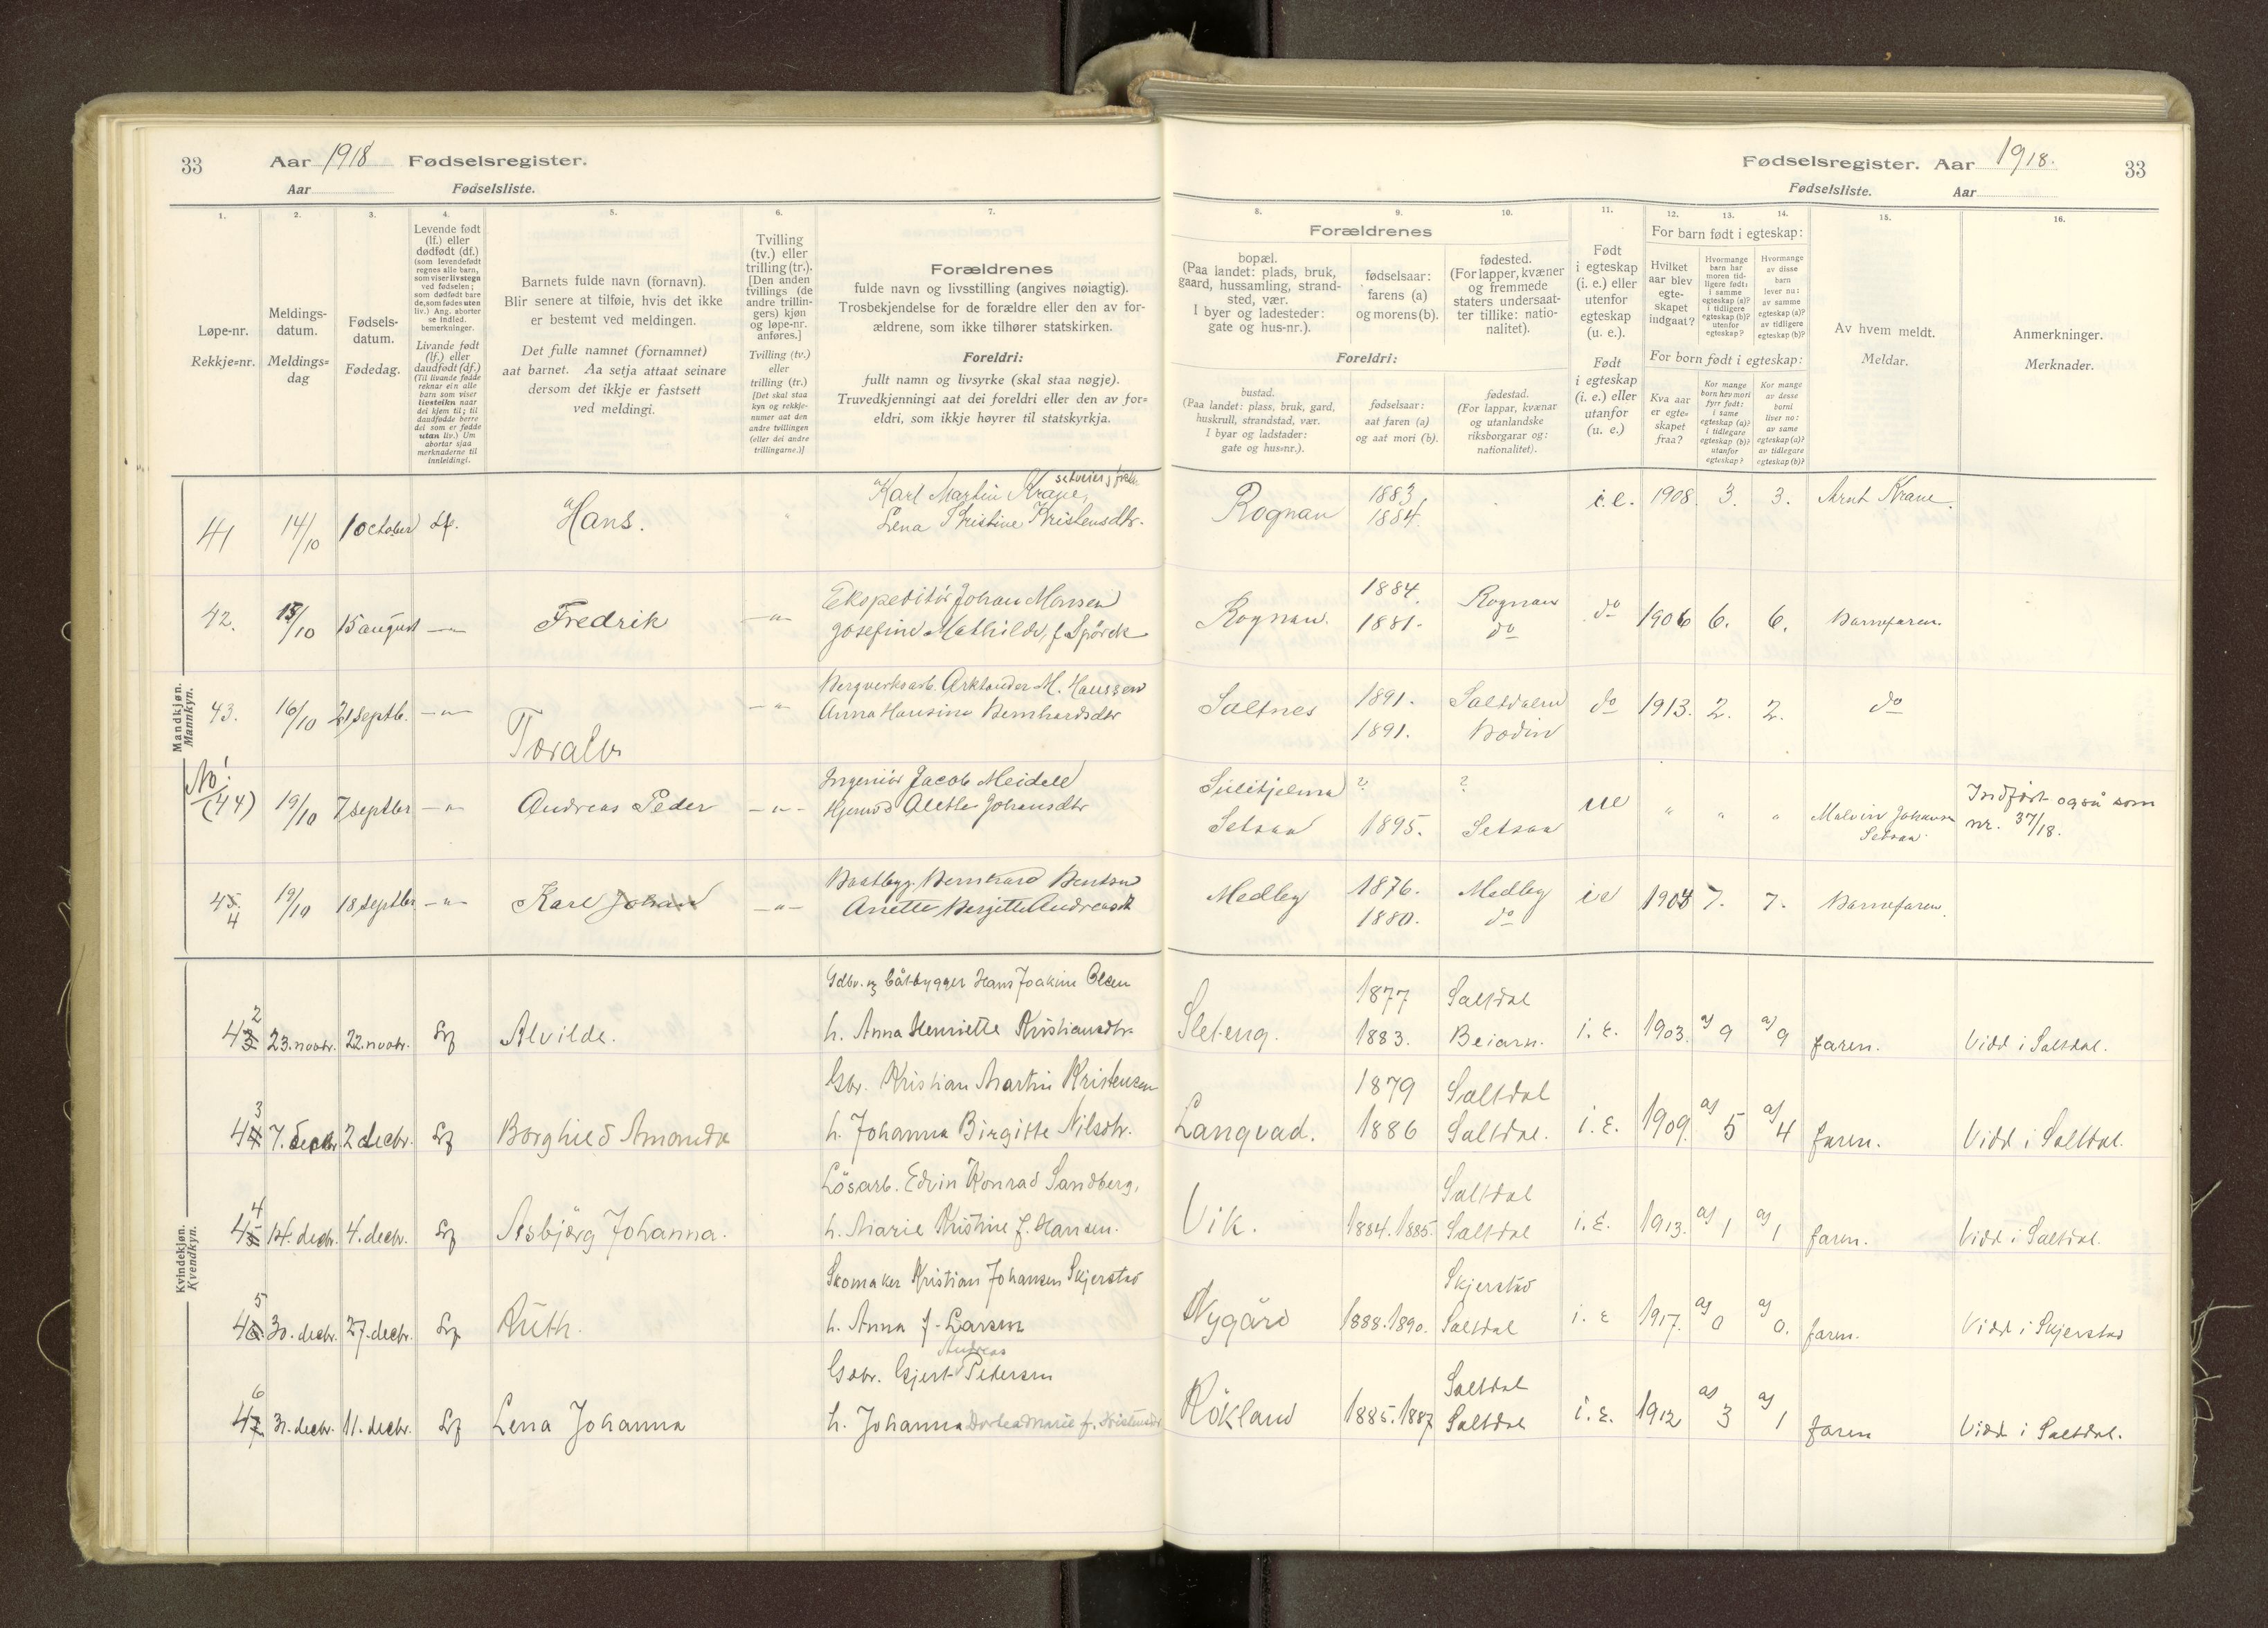 33
Aar 1918 Fødselsregister.
Aar Fødselsliste.
Fødselsregister. Aar 1918.
Fødselsliste. Aar
33
1.
Løpe-nr.
Rekkje-nr.
2.
Meldings-
datum.
Meldings-
dag
3.
Fødsels-
datum.
Fødedag.
4.
Levende født
(lf.) eller
dødfødt (df.)
(som levendefødt
regnes alle barn,
som viser livstegn
ved fødselen;
som dødfødt bare
de, som fødes uten
liv.) Ang. aborter
se indled.
bemerkninger.
Livande født
(lf.) eller
daudfødt (df.)
(Til livande fødde
reknar ein alle
barn som viser
livsteikn naar
dei kjem til; til
daudfødde berre
dei som er fødde
utan liv.) Um
abortar sjaa
merknaderne til
innleidingi.
5.
Barnets fulde navn (fornavn).
Blir senere at tilføie, hvis det ikke
er bestemt ved meldingen.
Det fulle namnet (fornamnet)
aat barnet. Aa setja attaat seinare
dersom det ikkje er fastsett
ved meldingi.
6.
Tvilling
(tv.) eller
trilling (tr.).
[Den anden
tvillings (de
andre trillin-
gers) kjøn
og løpe-nr.
anføres.]
Tvilling (tv.)
eller
trilling (tr.)
[Det skal staa
kyn og rekkje-
numer aat den
andre tvillingen
(eller dei andre
trillingarne.)]
7.
Forældrenes
fulde navn og livsstilling (angives nøiagtig).
Trosbekjendelse for de forældre eller den av for-
ældrene, som ikke tilhører statskirken.
Foreldri:
fullt namn og livsyrke (skal staa nøgje).
Truvedkjenningi aat dei foreldri eller den av for-
eldri, som ikkje høyrer til statskyrkja.
Forældrenes
8.
bopæl.
(Paa landet: plads, bruk,
gaard, hussamling, strand-
sted, vær.
I byer og ladesteder:
gate og hus-nr.).
9.
fødselsaar:
farens (a)
og morens (b).
10.
fødested.
(For lapper, kvæner
og fremmede
staters undersaat-
ter tillike: natio-
nalitet).
Foreldri:
bustad.
(Paa landet: plass, bruk, gard,
huskrull, strandstad, vær.
I byar og ladstader:
gate og hus-nr.).
fødselsaar:
aat faren (a)
og aat mori (b).
fødestad.
(For lappar, kvænar
og utanlandske
riksborgarar og:
nationalitet).
11.
Født
i egteskap
(i. e.) eller
utenfor
egteskap
(u. e.).
Født
i egteskap
(i. e.) eller
utanfor
(u. e.)
12. 13. 14.
For barn født i egteskap:
Hvilket
aar blev
egte-
skapet
indgaat?
Hvormange
barn har
moren tid-
ligere født:
i samme
egteskap (a)?
i tidligere
egteskap (b)?
utenfor
egteskap?
Hvormange
av disse
barn
lever nu:
av samme
egteskap (a)?
av tidligere
egteskap (b)?
For born født i egteskap:
Kva aar
er egte-
skapet
fraa?
Kor mange
born hev mori
fyrr født:
i same
egteskap (a)?
i tidlegare
egteskap (b)?
utanfor
egteskap?
Kor mange
av desse
borni
liver no:
av same
egteskap (a)?
av tidlegare
egteskap (b)?
15.
Av hvem meldt.
Meldar.
16.
Anmerkninger.
Merknader.
Mandkjøn.
Mannkyn.
41 14/10 1 october Lf. Hans. Karl Martin Krane, Rognan 1883 i.e. 1908. 3. 3. Arnt Krane
Lena Kristine Kristensdtr. 1884.
42. 15/10 15 august —"— Fredrik —"— Ekspeditör Johan Monsen Rognan. 1884. Rognan do 1906 6. 6. Barnefaren.
Josefine Mathilde, f. Spörck 1881. do
43. 16/10 21 septb. —"— Toralv —"— Bergverksarb. M. Hanssen Saltnes 1891. Saltdalen do 1913. 2. 2. do
Anna Hansine Bernhardsdtr 1891. Bodin
No!
(44) 19/10 7 septbr —"— Andreas Peder —"— Ingeniör Jacob Meidell Sulitjelma ? ? ue " " " Malvin Johansen Indfört også som
Aletha Johansdtr Setsaa 1895. Setsaa Setsaa. nr. 37/18.
45. 19/10 18 septbr. —"— Karl Johan —"— Baatbygg. Bernhard Bentsen Medby 1876. Medby ie 1904 7. 7. Barnefaren.
4 Anette Bergitte Andreasdt 1880. do
Kvindekjøn.
Kvendkyn.
Gdbr. og båtbygger Hans Joakim Olsen 1877 Saltdal
2
43 23. novbr. 22. novbr. Lf Alvilde. h. Anna Henriette Kristiansdtr. Sleteng. 1883. Beiarn. i. E. 1903. a) 9 a) 9 faren. Vidd i Saltdal.
Gbr. Kristian Martin Kristensen 1879 Saltdal
3
44 7. decbr. 2 decbr. Lf Borghild Amanda h. Johanna Birgitte Nilsdtr. Langvad. 1886 Saltdal. i. E. 1909. a) 5 a) 4 faren. Vidd i Saltdal.
Lösarb. Edvin Konrad Sandberg, Saltdal
4
45 14. decbr. 4. decbr. Lf Asbjörg Johanna. h. Marie Kristine f. Hansen. Vik. 1884. 1885. Saltdal i. E. 1913. a) 1 a) 1 faren. Vidd i Saltdal.
Skomaker Kristian Johansen Skjerstad Skjerstad
5
46. 30. decbr. 27. decbr. Lf Ruth. h. Anna f. Larsen Nygård 1888. 1890. Saltdal i. E 1917. a) 0 a) 0. faren. Vidd i Skjerstad
Andreas
Gdbr. Gjert Pedersen Saltdal
6
47 31. decbr. 11. decbr. Lf Lena Johanna h. Johanna Dorthea Marie f. Kristensdr Rökland 1885. 1887 Saltdal i. E. 1912 a) 3 a) 1 faren Vidd i Saltdal.